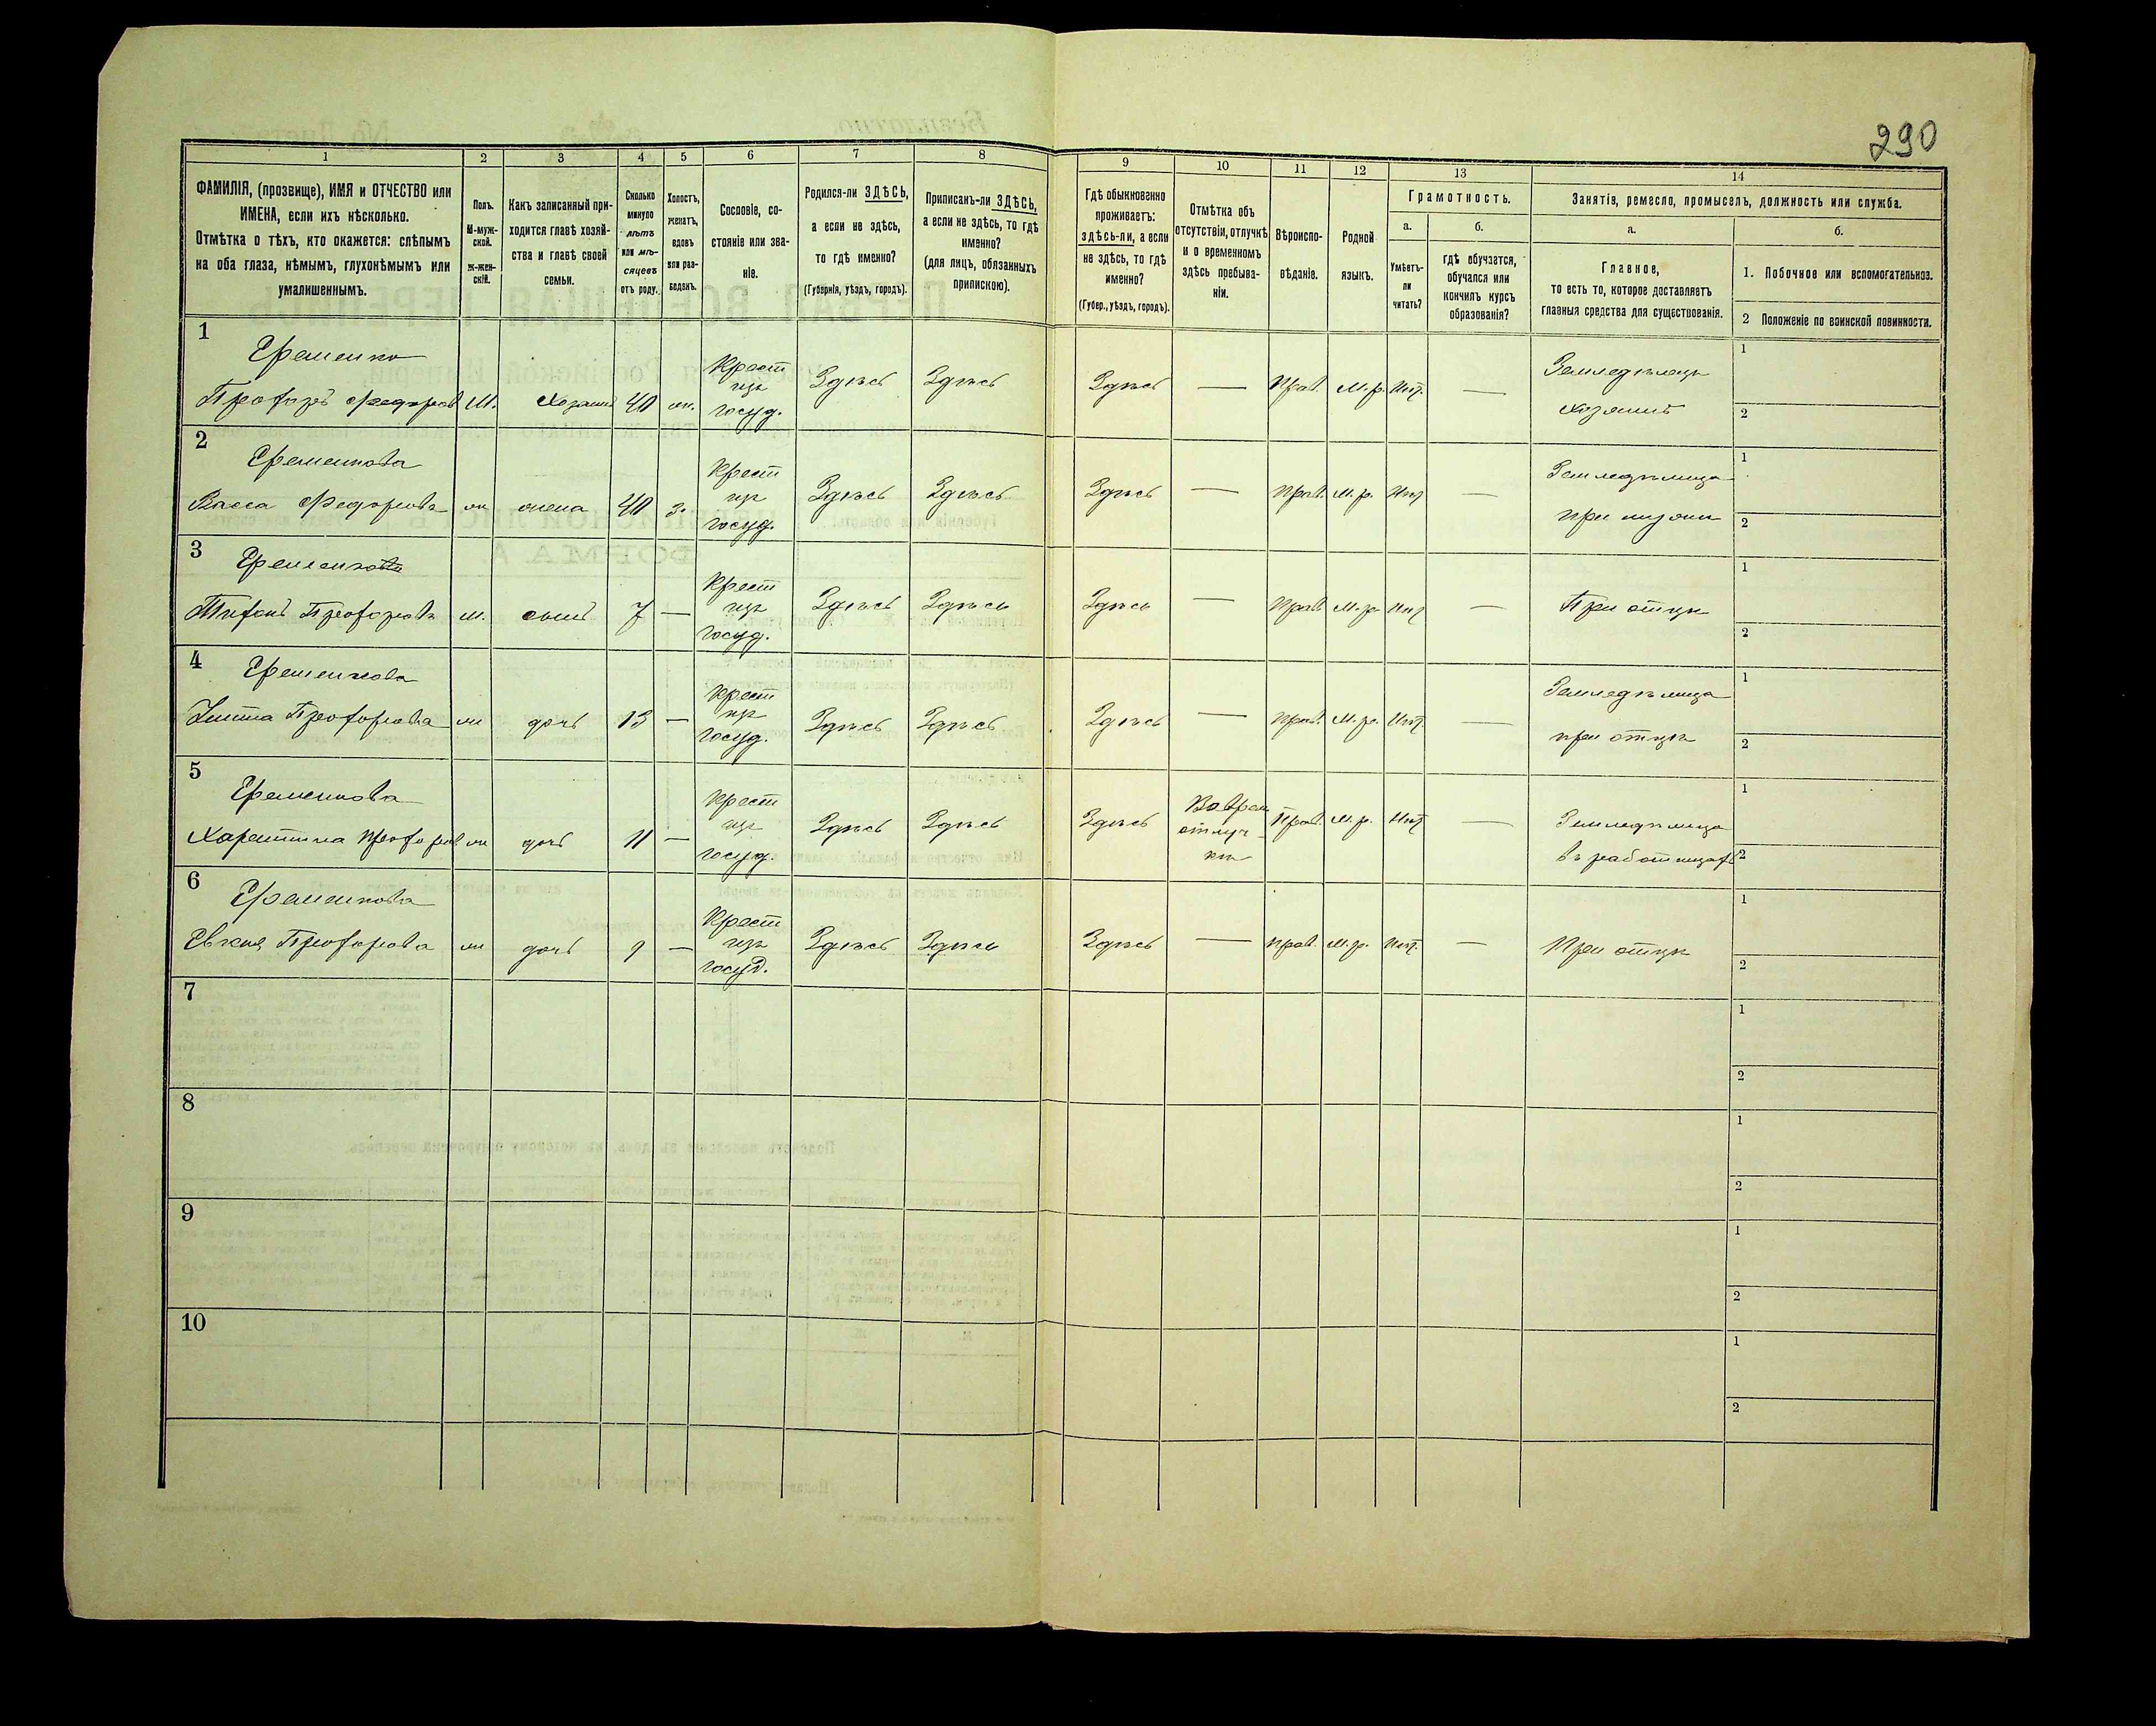 290
1 2 3 4 5 6 7 8 9 10 11 12 13 14
ФАМИЛІЯ, (прозвище), ИМЯ и ОТЧЕСТВО или
ИМЕНА, если ихъ нѣсколько.
Отмѣтка о тѣхъ, кто окажется: слѣпымъ
на оба глаза, нѣмымъ, глухонѣмымъ или
умалишеннымъ.
Полъ.
М-муж-
ской.
ж-жен-
скій.
Какъ записанный при-
ходится главѣ хозяй-
ства и главѣ своей
семьи.
Сколько
минуло
лѣтъ
или мѣ-
сяцевъ
отъ роду.
Холостъ,
женатъ,
вдовъ
или раз-
веденъ.
Сословіе, со-
стояніе или зва-
ніе.
Родился-ли ЗДѢСЬ,
а если не здѣсь,
то гдѣ именно?
(Губернія, уѣздъ, городъ).
Приписанъ-ли ЗДѢСЬ,
а если не здѣсь, то гдѣ
именно?
(для лицъ, обязанныхъ
припискою).
Гдѣ обыкновенно
проживаетъ:
здѣсь-ли, а если
не здѣсь, то гдѣ
именно?
(Губер., уѣздъ, городъ).
Отмѣтка объ
отсутствіи, отлучкѣ
и о временномъ
здѣсь пребыва-
ніи.
Вѣроиспо-
вѣданіе.
Родной
языкъ.
Грамотность.
а.
Умѣетъ-
ли
читать?
б.
гдѣ обучается,
обучался или
кончилъ курсъ
образованія?
Занятія, ремесло, промыселъ, должность или служба.
а.
Главное,
то есть то, которое доставляетъ
главныя средства для существованія.
б.
1. Побочное или вспомогательное.
2 Положеніе по воинской повинности.
1
Еременко
Крест
изъ
Земледѣлецъ
1
Прохоръ Федоров М. Хозяинъ 40 ж. госуд. Здѣсь Здѣсь Здѣсь — Прав. М.р. Нѣт. —
хозяинъ
2
2
Еременкова
Крест
изъ
Земледѣлица
1
Васса Федорова ж жена 40 з. госуд. Здѣсь Здѣсь Здѣсь — Прав. М.р. Нѣт —
при
2
3
Еременко
Крест
изъ
1
Прохорова м. сынъ 7 — госуд. Здѣсь Здѣсь Здѣсь — Прав М.р. Нѣт — При отцѣ
2
4
Еременкова
Крест
изъ
Земледѣлица
1
Прохорова ж дочь 13 — госуд. Здѣсь Здѣсь Здѣсь — Прав. М.р. Нѣт —
при отцѣ
2
5
Еременкова
Крест
изъ
Во врем
отлуч-
кѣ
Земледѣлица
1
Харитина Прохоров ж дочь 11 — госуд. Здѣсь Здѣсь Здѣсь Прав. М.р. Нѣт —
въ работницах
2
6
Еременкова
Крест
изъ
1
Прохорова ж дочь 9 — госуд. Здѣсь Здѣсь Здѣсь — прав. М.р. Нѣт. — При отцѣ
2
7
1
2
8
1
2
9
1
2
10
1
2